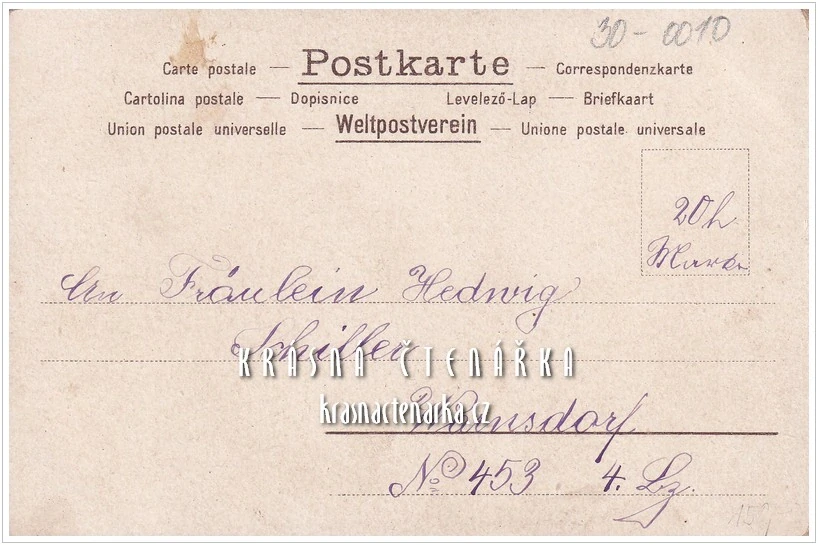 30-0010
Carte postale — Postkarte — Correspondenzkarte
Cartolina postale — Dopisnice Levelező-Lap — Briefkaart
Union postale universelle — Weltpostverein — Unione postale universale
20h
Marke
An Fräulein Hedwig
Schiller
KRÁSNÁ ČTENÁŘKA
krasnactenarka.cz
Warnsdorf
No 453 4. Bz.